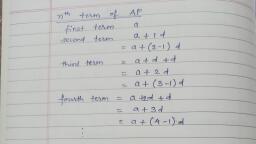 nth term of AP
first term a
second term a + 1 d
= a + (2-1) d
third term = a + d + d
= a + 2 d
= a + (3-1) d
fourth term = a + 2d + d
= a + 3d
= a + (4-1) d
: